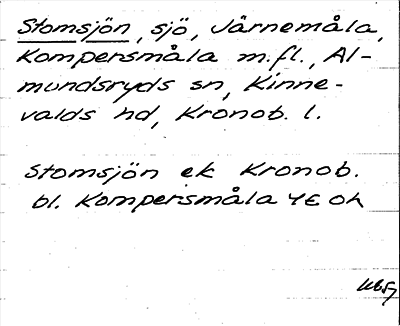 Stomsjön, sjö, Järnemåla,
Kompersmåla m.fl., Al-
mundsryds sn, Kinne-
valds hd, Kronob. l.
Stomsjön ek Kronob.
bl. Kompersmåla 4E Oh